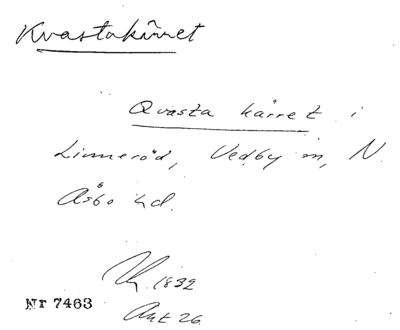 Kvastakärret
Qvasta kärret i
Linneröd, Vedby sn, N.
Åsbo hd.
1832
Akt 26.
Nr 7463